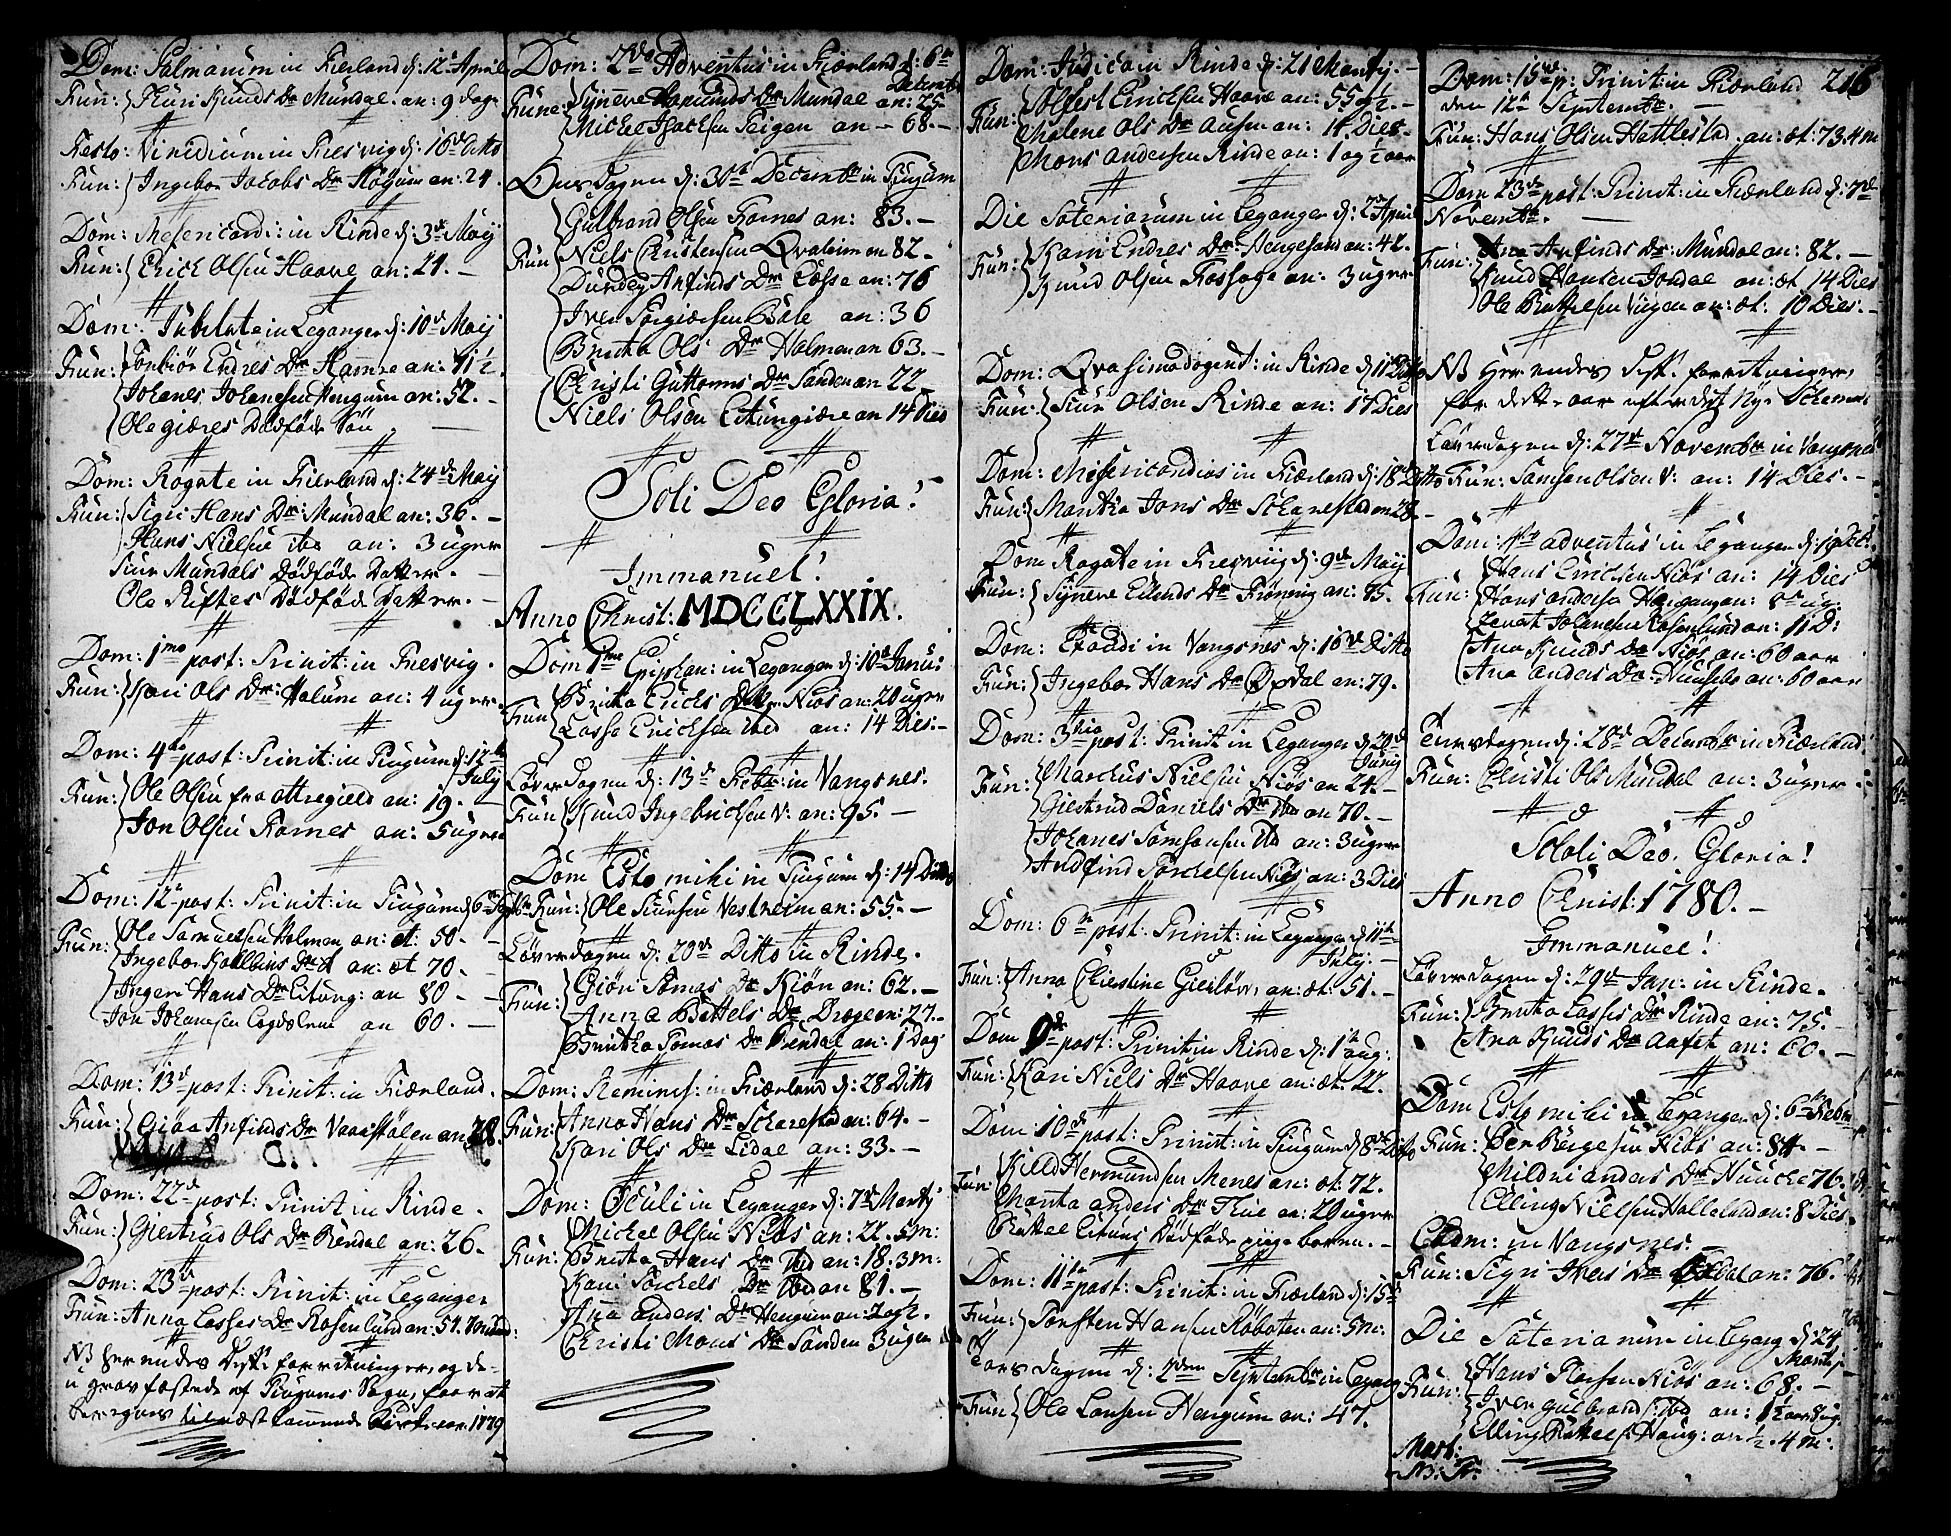 Dom: Palmarum in Fierland d: 12 April
Fun: Thuri Knuds Dr Mundal. an: 9 dage
Festo: Viridium in Fresvig d: 16de Ditto
Fun: Ingebor Jacobs Dr Høgum an: 24.
Dom: Mesericord: in Rinde d: 3de Maij
Fun: Erich Olsen Haave an: 21. –
Dom: Jubilate in Leganger d: 10de Maij
Fun: Endres Dr Hamre an: 71 ½.
Johanes Johanesen Hengum an: 52. –
Ole giæres Dødføde Søn. –
Dom: Rogate in Fierland d: 24de Maij
Fun: Sigri Hans Dr Mundal an: 36. –
Hans Nielsen ibd an: 3 uger
Siur Mundals Dødføde Datter. –
Ole Riftes Dødføde Datter. –
Dom: 1mo post: Trinit: in Fresvig.
Fun: Kari Ols Dr Holum an: 4 uger.
Dom: 4to post: Trinit: in Tiugum d: 12te
July
Fun: Ole Olsen fra an: 19. –
Jon Olsen Fornes an: 5 uger
Dom: 12te post: Trinit: in Tiugum d 6te Septbr
Fun: Ole Samuelsen Holmen an: æt: 50. –
Ingebor Dr an: æt 70. –
Ingeri Hans Dr Eitung: an 80 –
Jon Johannesen an 60. –
Dom: 13de post: Trinit: in Fiærland.
Fun: Giøa Anfinds Dr an 28.
Dom: 22de post: Trinit in Rinde.
Fun: Giertrud Ols Dr Rendal an: 26.
Dom: 23de post: Trinit: in Leganger
Fun: Anna Lasses Dr Rosenlund an: 51.
NB her endes Dette forretninger, og de
i grav fæstede af Tiugums Sogn, for at
1779
Dom: 2de Adventus in Fiærland d: 6te
Decembr
Fune: Synneve Dr Mundal an: 25
Michel Isachsen Feigen an – 68. –
Onsdagen d: 30te Decembr in Tiugum
Gulbrand Olsen Fornes an: 83. –
Fun Niels Christensen Qvaleim an 82. –
Durdey Anfinds Dr Cosse an: 76
Iver Torgiersen Bale an: 36
Britha Ols Dr Holmen an 63. –
Christi Guttorms Dr Sanden an 22 –
Niels Olsen Eitungiære an 14 Dies
Soli Deo Gloria!
Immanuel!
Anno Christ: MDCCLXXIX.
Dom 1ma Epiphan: in Leganger d: 10de Janu:
Fun Britha Erichs Dr Niøs an: 20 uger
Lasse Erichsen ibid an: 14 Dies: –
Løverdagen d: 13de Febr: in Vangsnes.
Fun Knud Ingebrichsen V: an: 95. –
Dom Esto mihi in Tiugum d: 14 Ditto
Fun: Ole Siursen Vestreim an: 55. –
Løverdagen d: 20de Ditto in Rinde.
Fun: Giøri Tomas Dr Kiøn an: 62. –
Anna Bottels Dr an: 27. –
Britha Tomas Dr Rendal an: 1 Dag
Dom: Reminis: in Fiærland d: 28 Ditto
Fun: Anna Hans Dr an: 64. –
Kari Ols Dr Lidal an: 33. –
Dom: Oculi in Leganger d: 7de Martij
Michel Olsen Niøs an: 22. 5 m:
Fun: Britha Hans Dr ibid an: 18. 3 m:
Kari Torchels Dr ibid an 81. –
Ana Anders Dr Hengum an: 2 og ½.
Christi Mons Dr Sanden 3 uger
Dom: Judica in Rinde d: 21 Martij. –
Fun: Solfest Erichsen Haave an: 55 og ½. –
Malene Ols Dr an: 14 Dies –
Mons Andersen Rinde an: 1 og ½ aar
Die Soteriarum in Leganger d: 2de April
Fun: Karn Endres Dr Hengesand an: 42.
Knud Olsen Fosshage an: 3 uger
Dom: Qvasimodogent: in Rinde d 11te Ditto
Fun: Siur Olsen Rinde an: 17 Dies
Dom: Misericordias in Fiærland d: 18de Ditto
Fun: Martha Jons Dr an 28. –
Dom Rogate in Fresviig d: 9de Maij
Fun: Synneve Eilends Dr Frønnig an: 85.
Dom: Exaudi in Vangsnes d: 16de Ditto
Fun: Ingebor Hans Dr Oxdal an: 79.
Dom: 3tia post: Trinit in Leganger d 20de
Junij
Fun: Marchus Nielsen Niøs an 24. –
Giertrud Daniels Dr ibd an 70. –
Johanes Samsonsen ibd an: 3 uger
Andfind Torchelsen Niøs an: 3 Dies
Dom: 6te post: Trinit: in Leganger d 11te
July: –
Fun: Anna Christine Giesløw, an: æt: 51. –
Dom 9de post: Trinit in Rinde d: 1te aug:
Fun: Kari Niels Dr Haave an: æt: 22.
Dom 10de post: Trinit: in Tiugum d 8de Ditto
Fun: Kield Hermundsen Menes an: æt: 72.
Marita anders Dr Thue an: 20 uger
Bottel Eituns Dødføde pige barn. –
Dom: 11te post: Trinit: in Fiærland d: 15de
Fun: Torsten Hansen Robaten an: 5 m:
Torsdagen d: 2den Septembr in Legang
Fun: Ole Larsen Hengum an: 47.
Dom: 15de p: Trinit: in Fiærland 216
den 12te Septembr. –
Fun: Hans Olsen Hattlestad. an: æt: 73. 4 m
Dom 23de post: Trinit: in Fiærland d: 7de
Novembr. –
Fun: Ana Anfinds Dr Mundal an: 82. –
Knud Hansen Jordal an: æt 14 Dies
Ole Bottelsen Vigen an: æt. 10 Dies: –
NB Her endes Dist: forretninger,
for dette aar efter det Nye Schema
Løverdagen d: 27de Novembr in Vangsnes
Fun: Samson Olsen V: an: 14 Dies. –
Dom: adventus in Leganger d: 19 Dec:
Hans Erichsen Niøs an: 14 Dies
Fun: Hans anders Hengum an: 8 ug:
Zenat Johanesen Rosenlund an: 11 D:
Ana Knuds Dr Niøs an: 60 aar
Ana anders Dr an: 60 aar
Tiersdagen d: 28de Decembr in Fiærland:
Fun: Christi Ols Mundal an: 3 uger
Soli Deo. Gloria!
Anno Christ: 1780. –
Immanuel!
Løverdagen d: 29de Jan: in Rinde.
Fun: Britha Lasses Dr Rinde an: 75. –
Ana Knuds Dr Aafet an: 60. –
Dom Esto mihi in Leganger d: 6te Febr
Fun: Per Børgesen Niøs an: 84. –
Mildri anders Dr Huuche 76.
Elling Nielsen Halleland an: 8 Dies.
Eadm: in Vangsnes. –
Fun: Sigri Ivers Dr Oxdal an: 76.
Die Soteriarum in Legang d: 24
Martij –
Fun: Hans Niøs an: 68. –
Iver Gulbrands: ibd an: 1½ aar 8 ug:
Elling Bottels: Haug: an ½. 4 m: